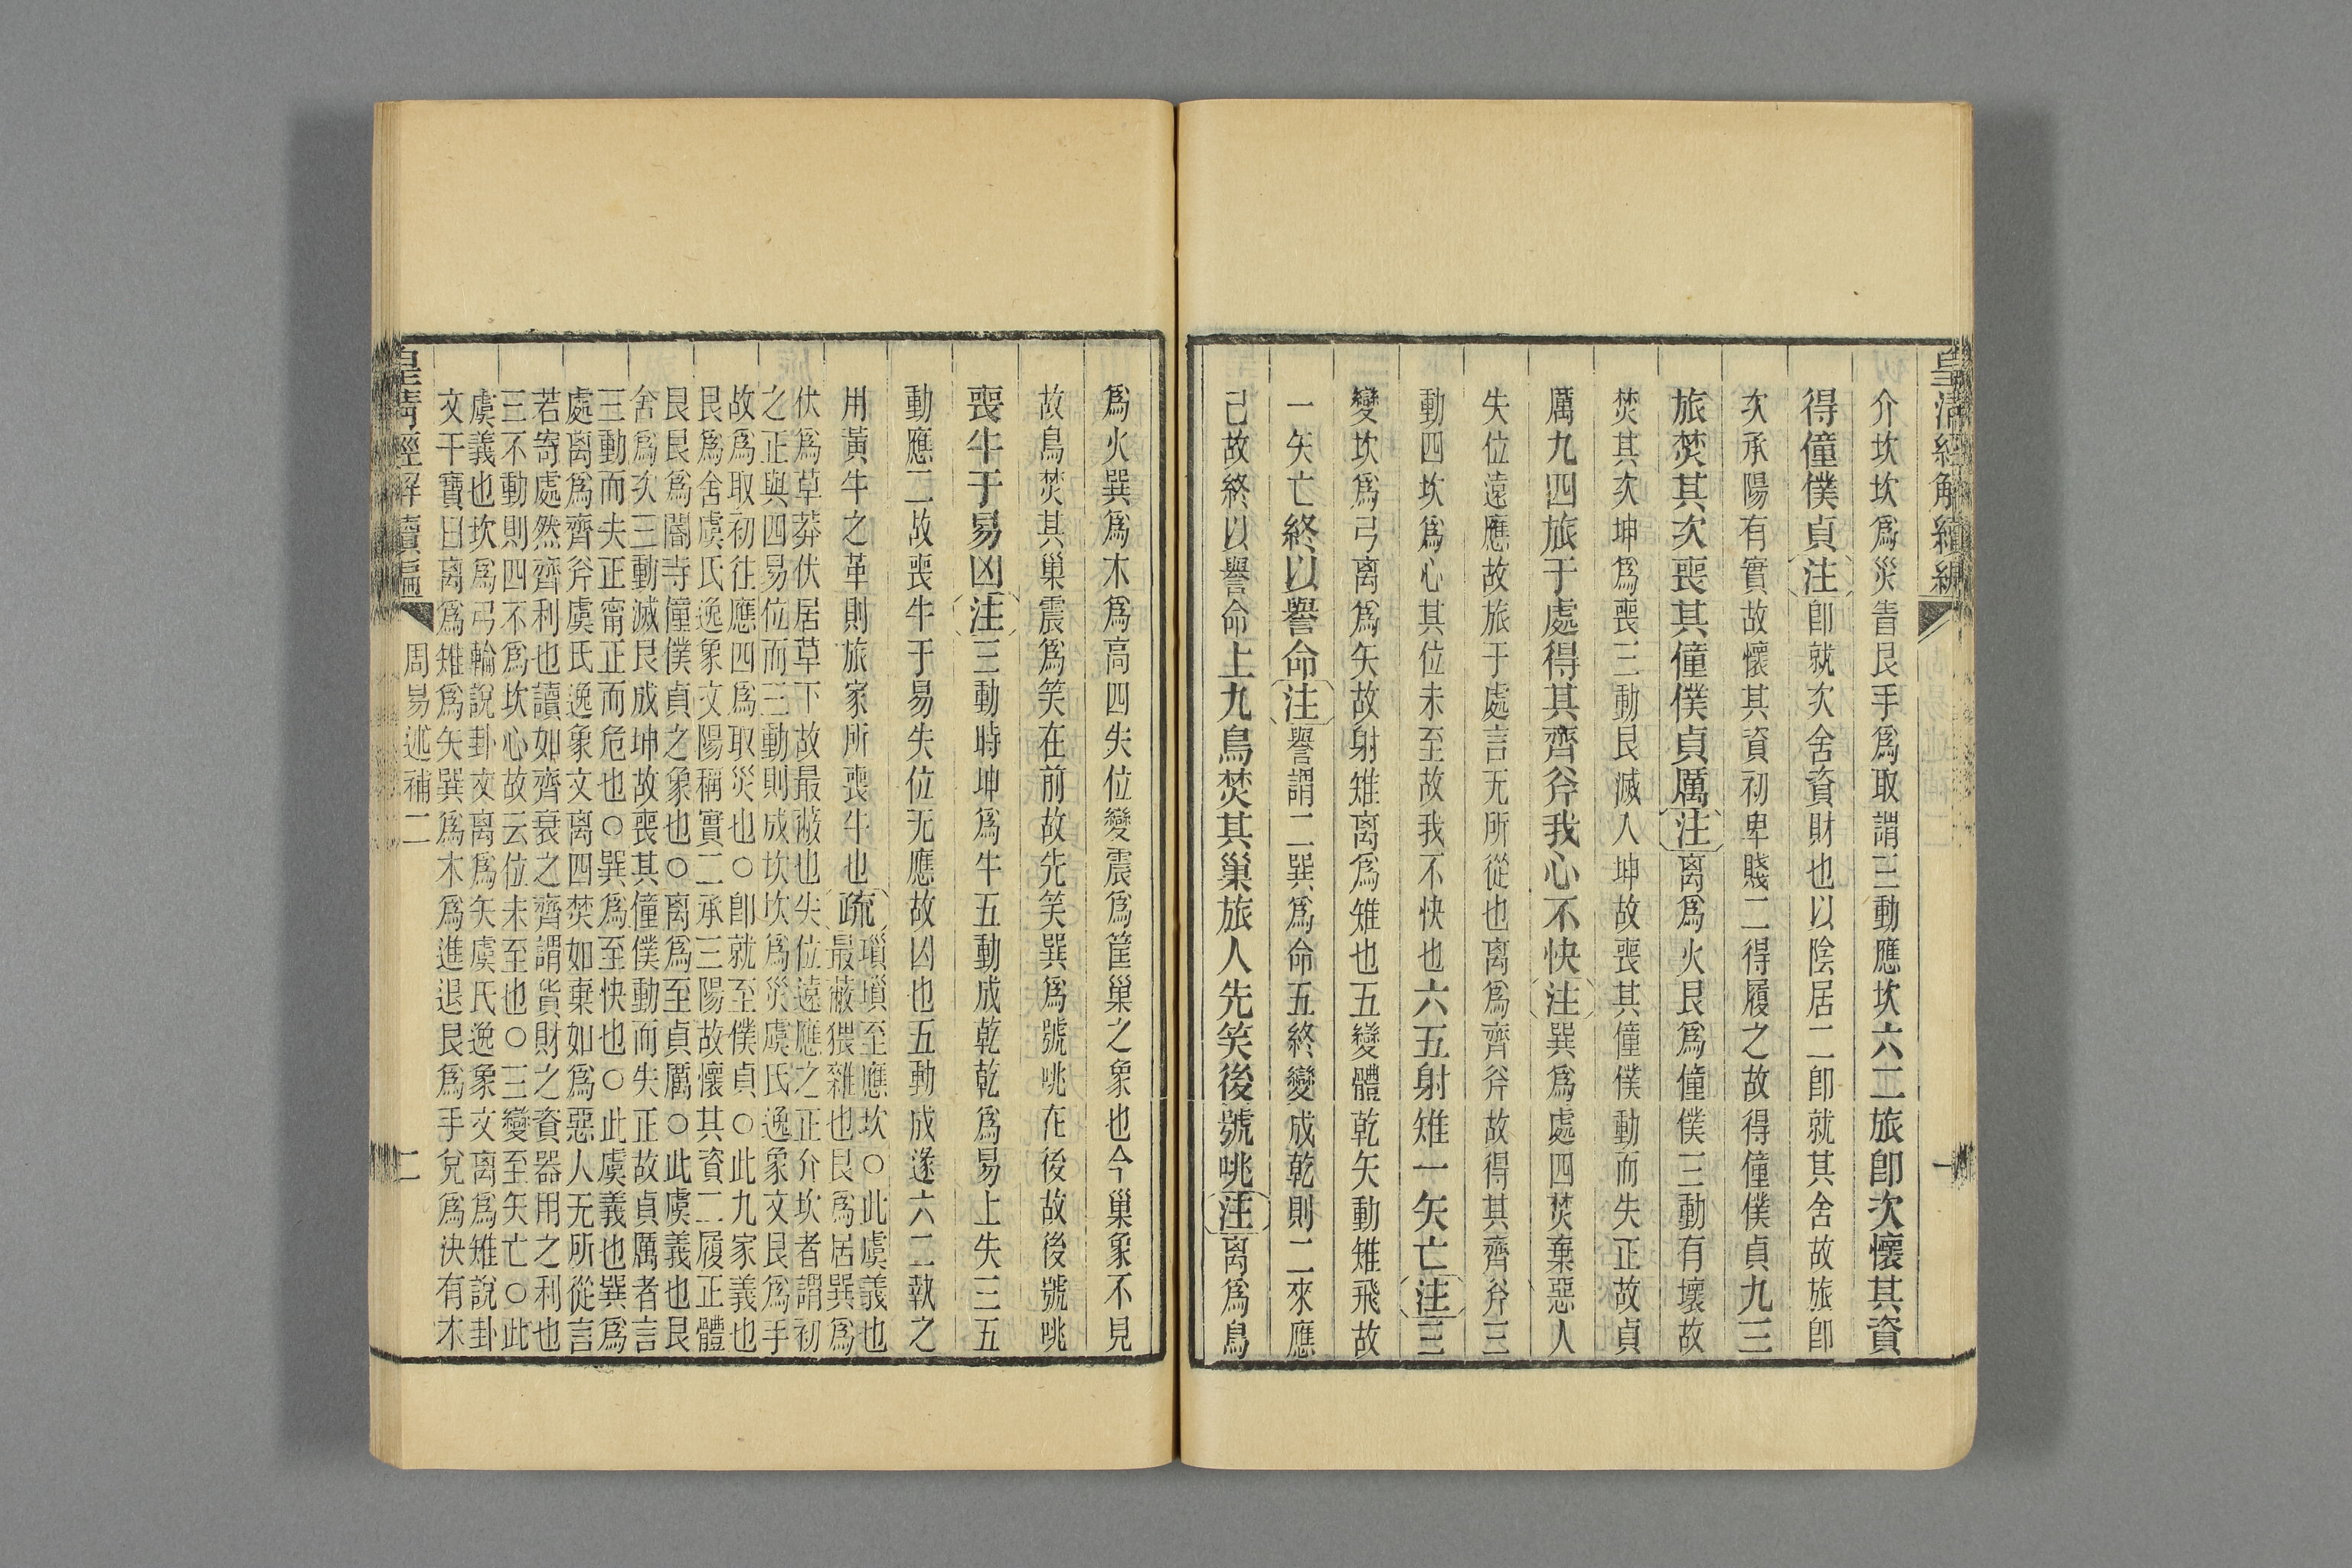 皇清經解續編
一
介坎坎爲災眚艮手爲取謂三動應坎六二旅卽次懷其資
得僮僕貞注卽就次舍資財也以陰居二卽就其舍故旅卽
次承陽有實故懷其資初卑賤二得履之故得僮僕貞九三
旅焚其次喪其僮僕貞厲注离爲火艮爲僮僕三動有壞故
焚其次坤爲喪三動艮滅入坤故喪其僮僕動而失正故貞
厲九四旅于處得其齊斧我心不快注巽爲處四焚棄惡人
失位遠應故旅于處言无所從也离爲齊斧故得其齊斧三
動四坎爲心其位未至故我不快也六五射雉一矢亡注三
變坎爲弓离爲矢故射雉离爲雉也五變體乾矢動雉飛故
一矢亡終以譽命注譽謂二巽爲命五終變成乾則二來應
己故終以譽命上九鳥焚其巢旅人先笑後號咷注离爲鳥
爲火巽爲木爲高四失位變震爲筐巢之象也今巢象不見
故鳥焚其巢震爲笑在前故先笑巽爲號咷在後故後號咷
喪牛于易凶注三動時坤爲牛五動成乾乾爲易上失三五
動應二故喪牛于易失位无應故凶也五動成遂六二執之
用黃牛之革則旅家所喪牛也疏瑣瑣至應坎○此虞義也
最蔽猥雜也艮爲居巽爲
伏爲草莽伏居草下故最蔽也失位遠應之正介坎者謂初
之正與四易位而三動則成坎坎爲災虞氏逸象文艮爲手
故爲取初往應四爲取災也○卽就至僕貞○此九家義也
艮爲舍虞氏逸象文陽稱實二承三陽故懷其資二履正體
艮艮爲閽寺僮僕貞之象也○离爲至貞厲○此虞義也艮
舍爲次三動滅艮成坤故喪其僮僕動而失正故貞厲者言
三動而夫正甯正而危也○巽爲至快也○此虞義也巽爲
處离爲齊斧虞氏逸象文离四焚如棄如爲惡人无所從言
若寄處然齊利也讀如齊衰之齊謂貨財之資器用之利也
三不動則四不爲坎心故云位未至也○三變至矢亡○此
虞義也坎爲弓輪說卦文离爲矢虞氏逸象文离爲雉說卦
文干寶曰离爲雉爲矢巽爲木爲進退艮爲手兌爲決有木
皇清經解續編
周易述補二
二